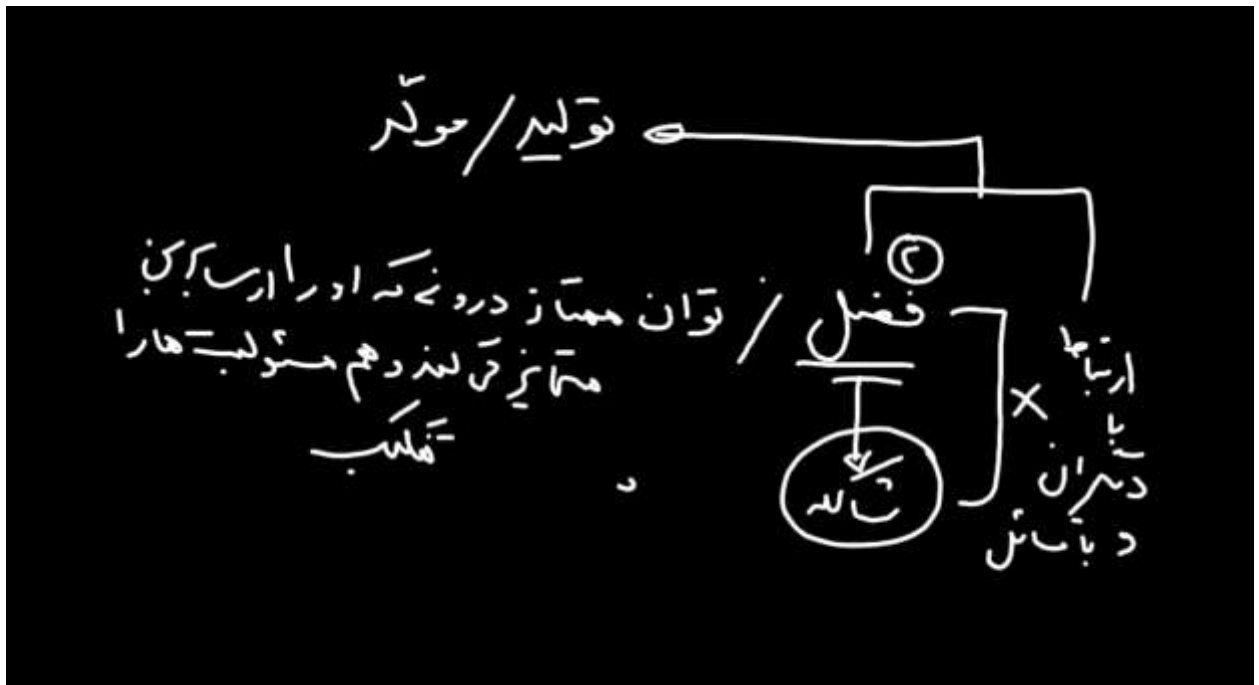 تولید / مولّد
۲
فضل / توان ممتاز درونی که او را از سایرین
متمایز می کند و هم مسئولیت ها را
تفکیک
شاکله
×
ارتباط
با
دیگران
و با مسائل